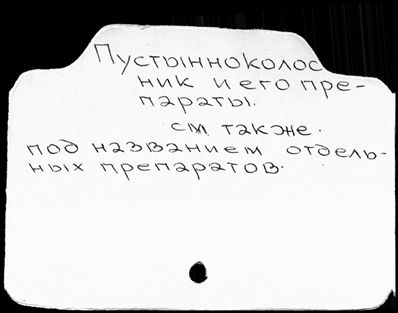 Пустынноколос
ник и его пре-
параты.
см также.
под названием отдель-
ных препаратов.